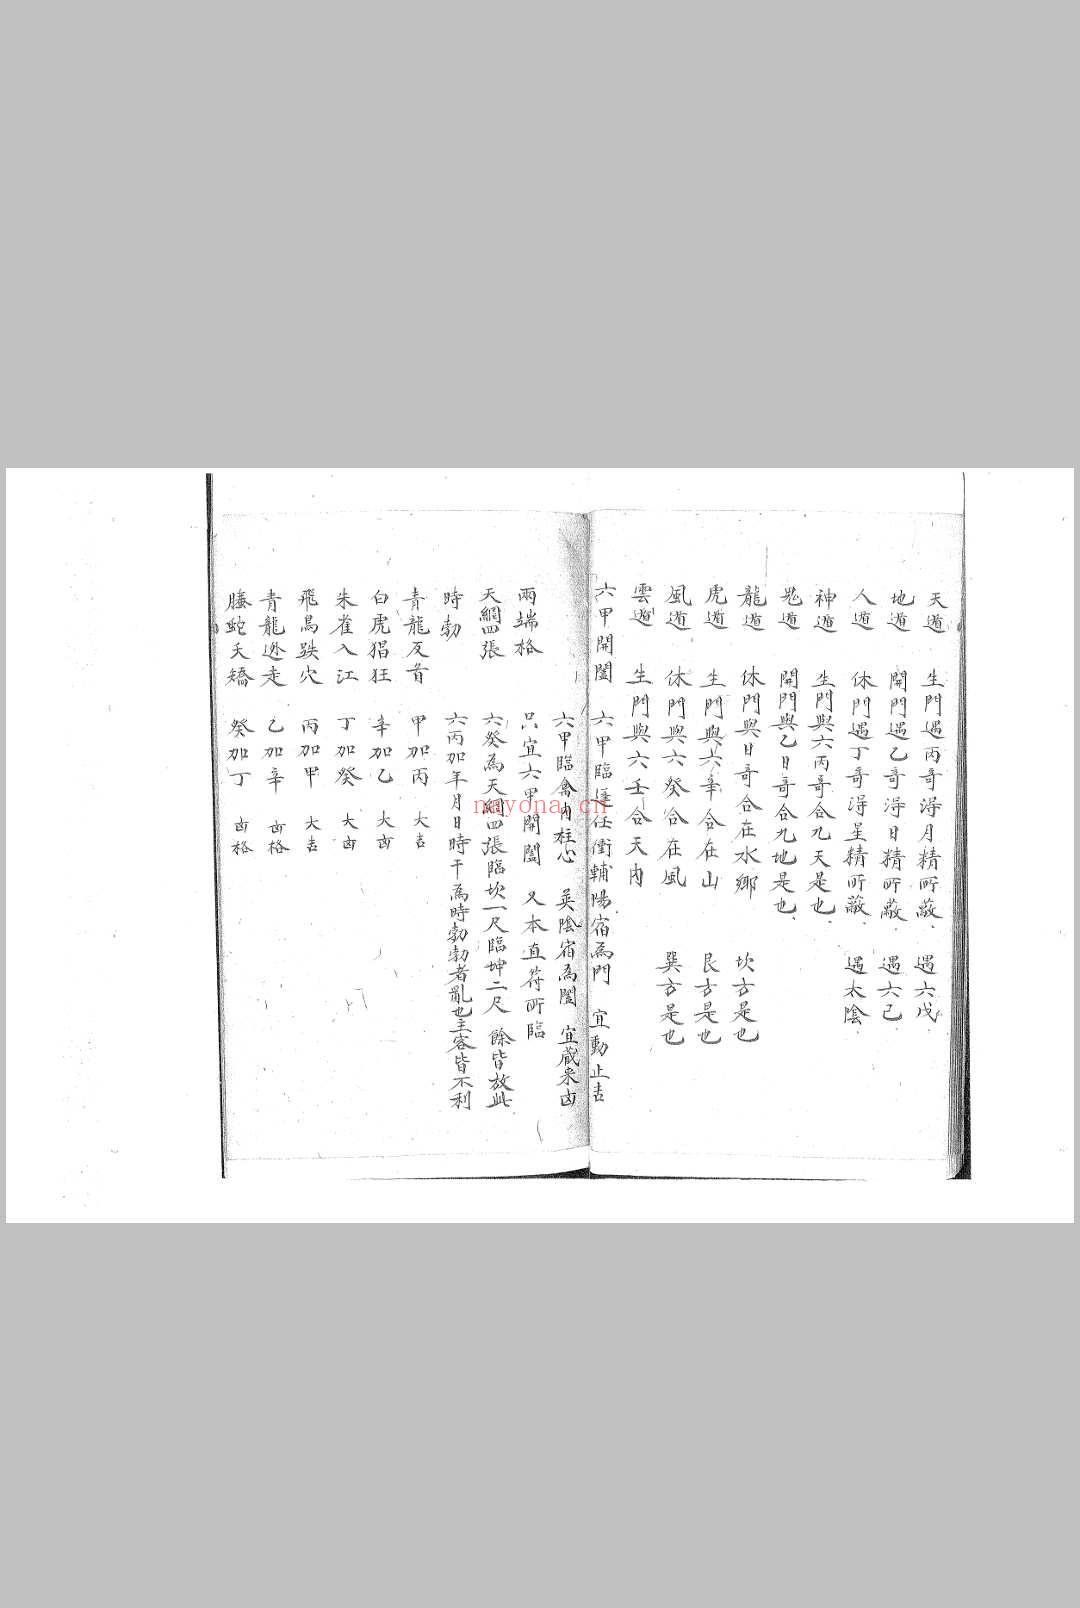 天遁　生門遇丙奇得月精所蔽　遇六戊
地遁　開門遇乙奇得日精所蔽　遇六己
人遁　休門遇丁奇得星精所蔽　遇太陰
神遁　生門與六丙奇合九天是也
鬼遁　開門與乙日奇合九地是也
龍遁　休門與日奇合在水鄉　坎方是也
虎遁　生門與六辛合在山　艮方是也
風遁　休門與六癸合在風　巽方是也
雲遁　生門與六壬合天內
六甲開闔　六甲臨蓬任衝輔陽宿為門　宜動止吉
六甲臨禽內柱心　英陰宿為闔　宜藏来凶
兩端格　只宜六甲開闔　又本直符所臨
天網四張　六癸為天網四張臨坎一尺臨坤二尺　餘皆放此
時勃　六丙加年月日時干為時勃勃者亂也主客皆不利
青龍反首　甲加丙　大吉
白虎猖狂　辛加乙　大凶
朱雀入江　丁加癸　大凶
飛鳥跌穴　丙加甲　大吉
青龍逃走　乙加辛　凶格
螣蛇夭矯　癸加丁　凶格
nayona.cn